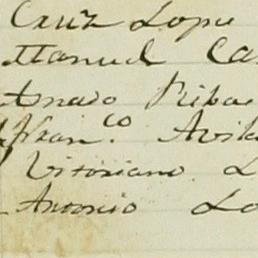 Cruz Lope
Manuel Ca
Amado Ribae
Fran.co Avil
Vitoriano L
Antonio Lo